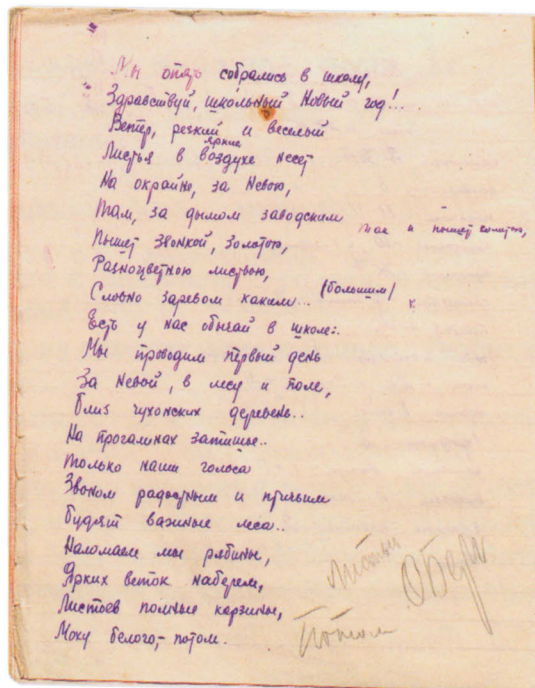 Мы опять собрались в школу,
Здравствуй, школьный Новый год!..
Ветер, резкий и веселый
яркие
Листья в воздухе несет
На окрайне, за Невою,
Там, за дымом заводским
Так и пышет золотою,
Пышет звонкой, золотою,
Разноцветною листвою,
Словно заревом каким... (большим) к
Есть у нас обычай в школе:.
Мы проводим первый день
За Невой, в лесу и поле,
Близ чухонских деревень..
На прогалинах затишье..
Только наши голоса
Звоном радостным и птичьим
Будят важные леса..
Наломаем мы рябины,
Ярких веток наберем,
Листьев полные корзины,
Моху белого,- потом.
Листьям
Потом